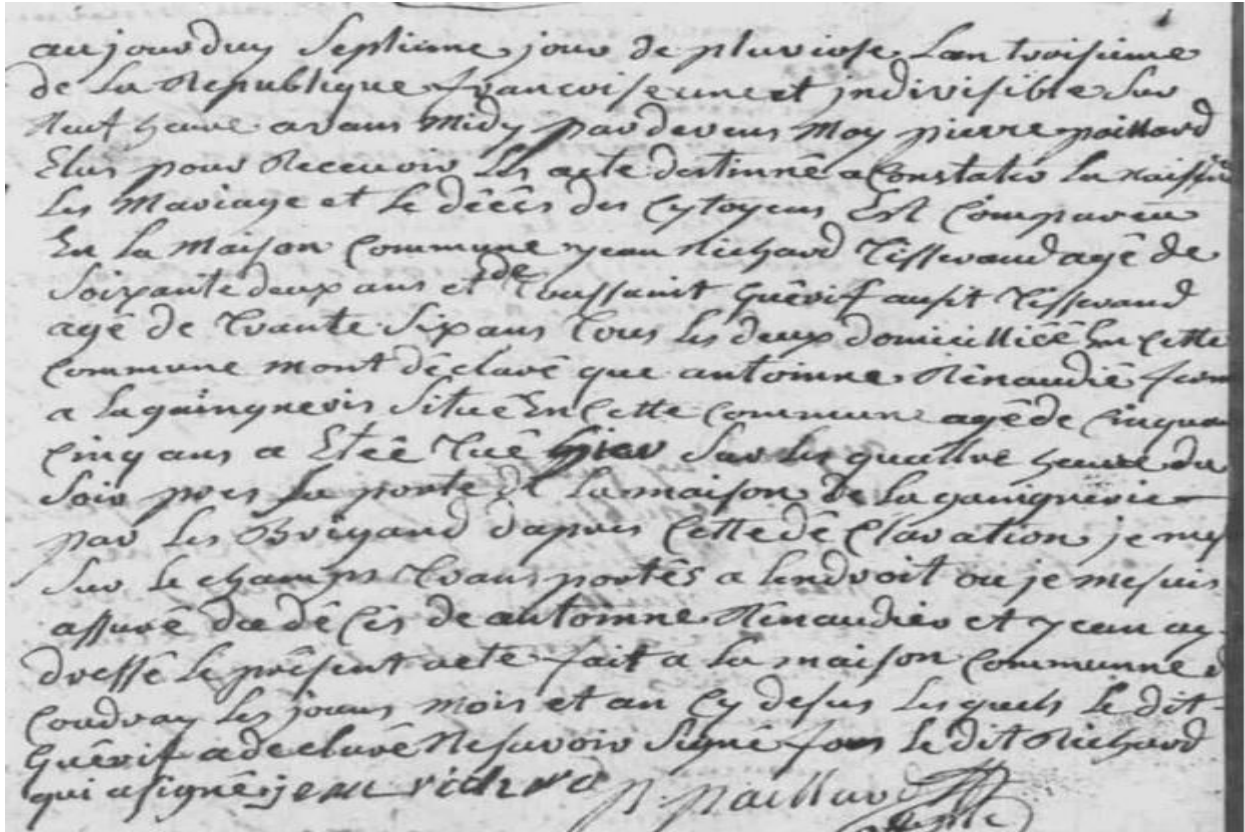 aujourduy Septieme jour de pluviose Lan troisieme
de La Republique francoise une et jndivisible Sur
Neuf heure avans Midy par devens Moy pierre paillard
Elus pour Recevoir Les acte destinné a Constater La naissan
Les Mariage et Le déées des Cytoyens Est Compareu
En La Maison Commune yean Richard Tisserand agé de
Soixante deux ans et de Toussaint Guérif ausit Tisserand
agé de Trante Six ans Tous Les deux domicilliéé En Cette
Commune mont déclaré que antoinne Rénaudié ferm
a Lagaingneris Situé En Cette Commune agé de Cinquan
Cinq ans a Etéé Tué hier Sur Les quattre heure du
Soir pres La porte de La maison de La gaingnerie
par Les Brigand dapres Cette dé Claration je my
Sur Le champs Trans portés a Lendroit ou je me suis
assuré du dé Cés de antoinne Rénaudier et y ean ay
dressé Le présent acte fait a La maison Communne d
Coudray Les jours mois et an Cy desus Les quels Le dit
Guérif a declaré Ne savoir Signé fors Le dit Richard
qui a signé jean richard p. paillard